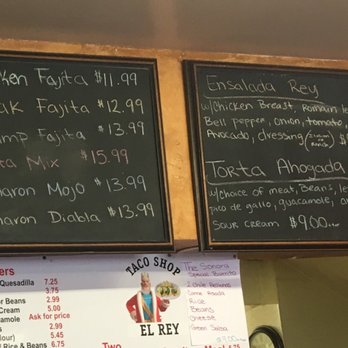 Fajita $11.99
Fajita $12.99
Fajita $13.99
Mix $15.99
Mojo $13.99
Diabla $13.99
Ensalada "Rey
w/Chicken Breast, Romain
Bell pepper, onion, tomato,
Avocado, dressing (Italian or Ranch)
Torta Ahogada
w/choice of meat, Beans,
Pico de gallo, guacamole,
sour cream $9.00
Quesadilla 7.25
6.75
or Beans 2.99
Cream 5.00
Ask for price
Beans 2.99
5.50
Rice & Beans 3.75
TACO SHOP
EL REY
Two
The Sonora
Special Burrito
2 Chile Rellenos
Carne Asada
Rice
Beans
Cheese
Green Salsa